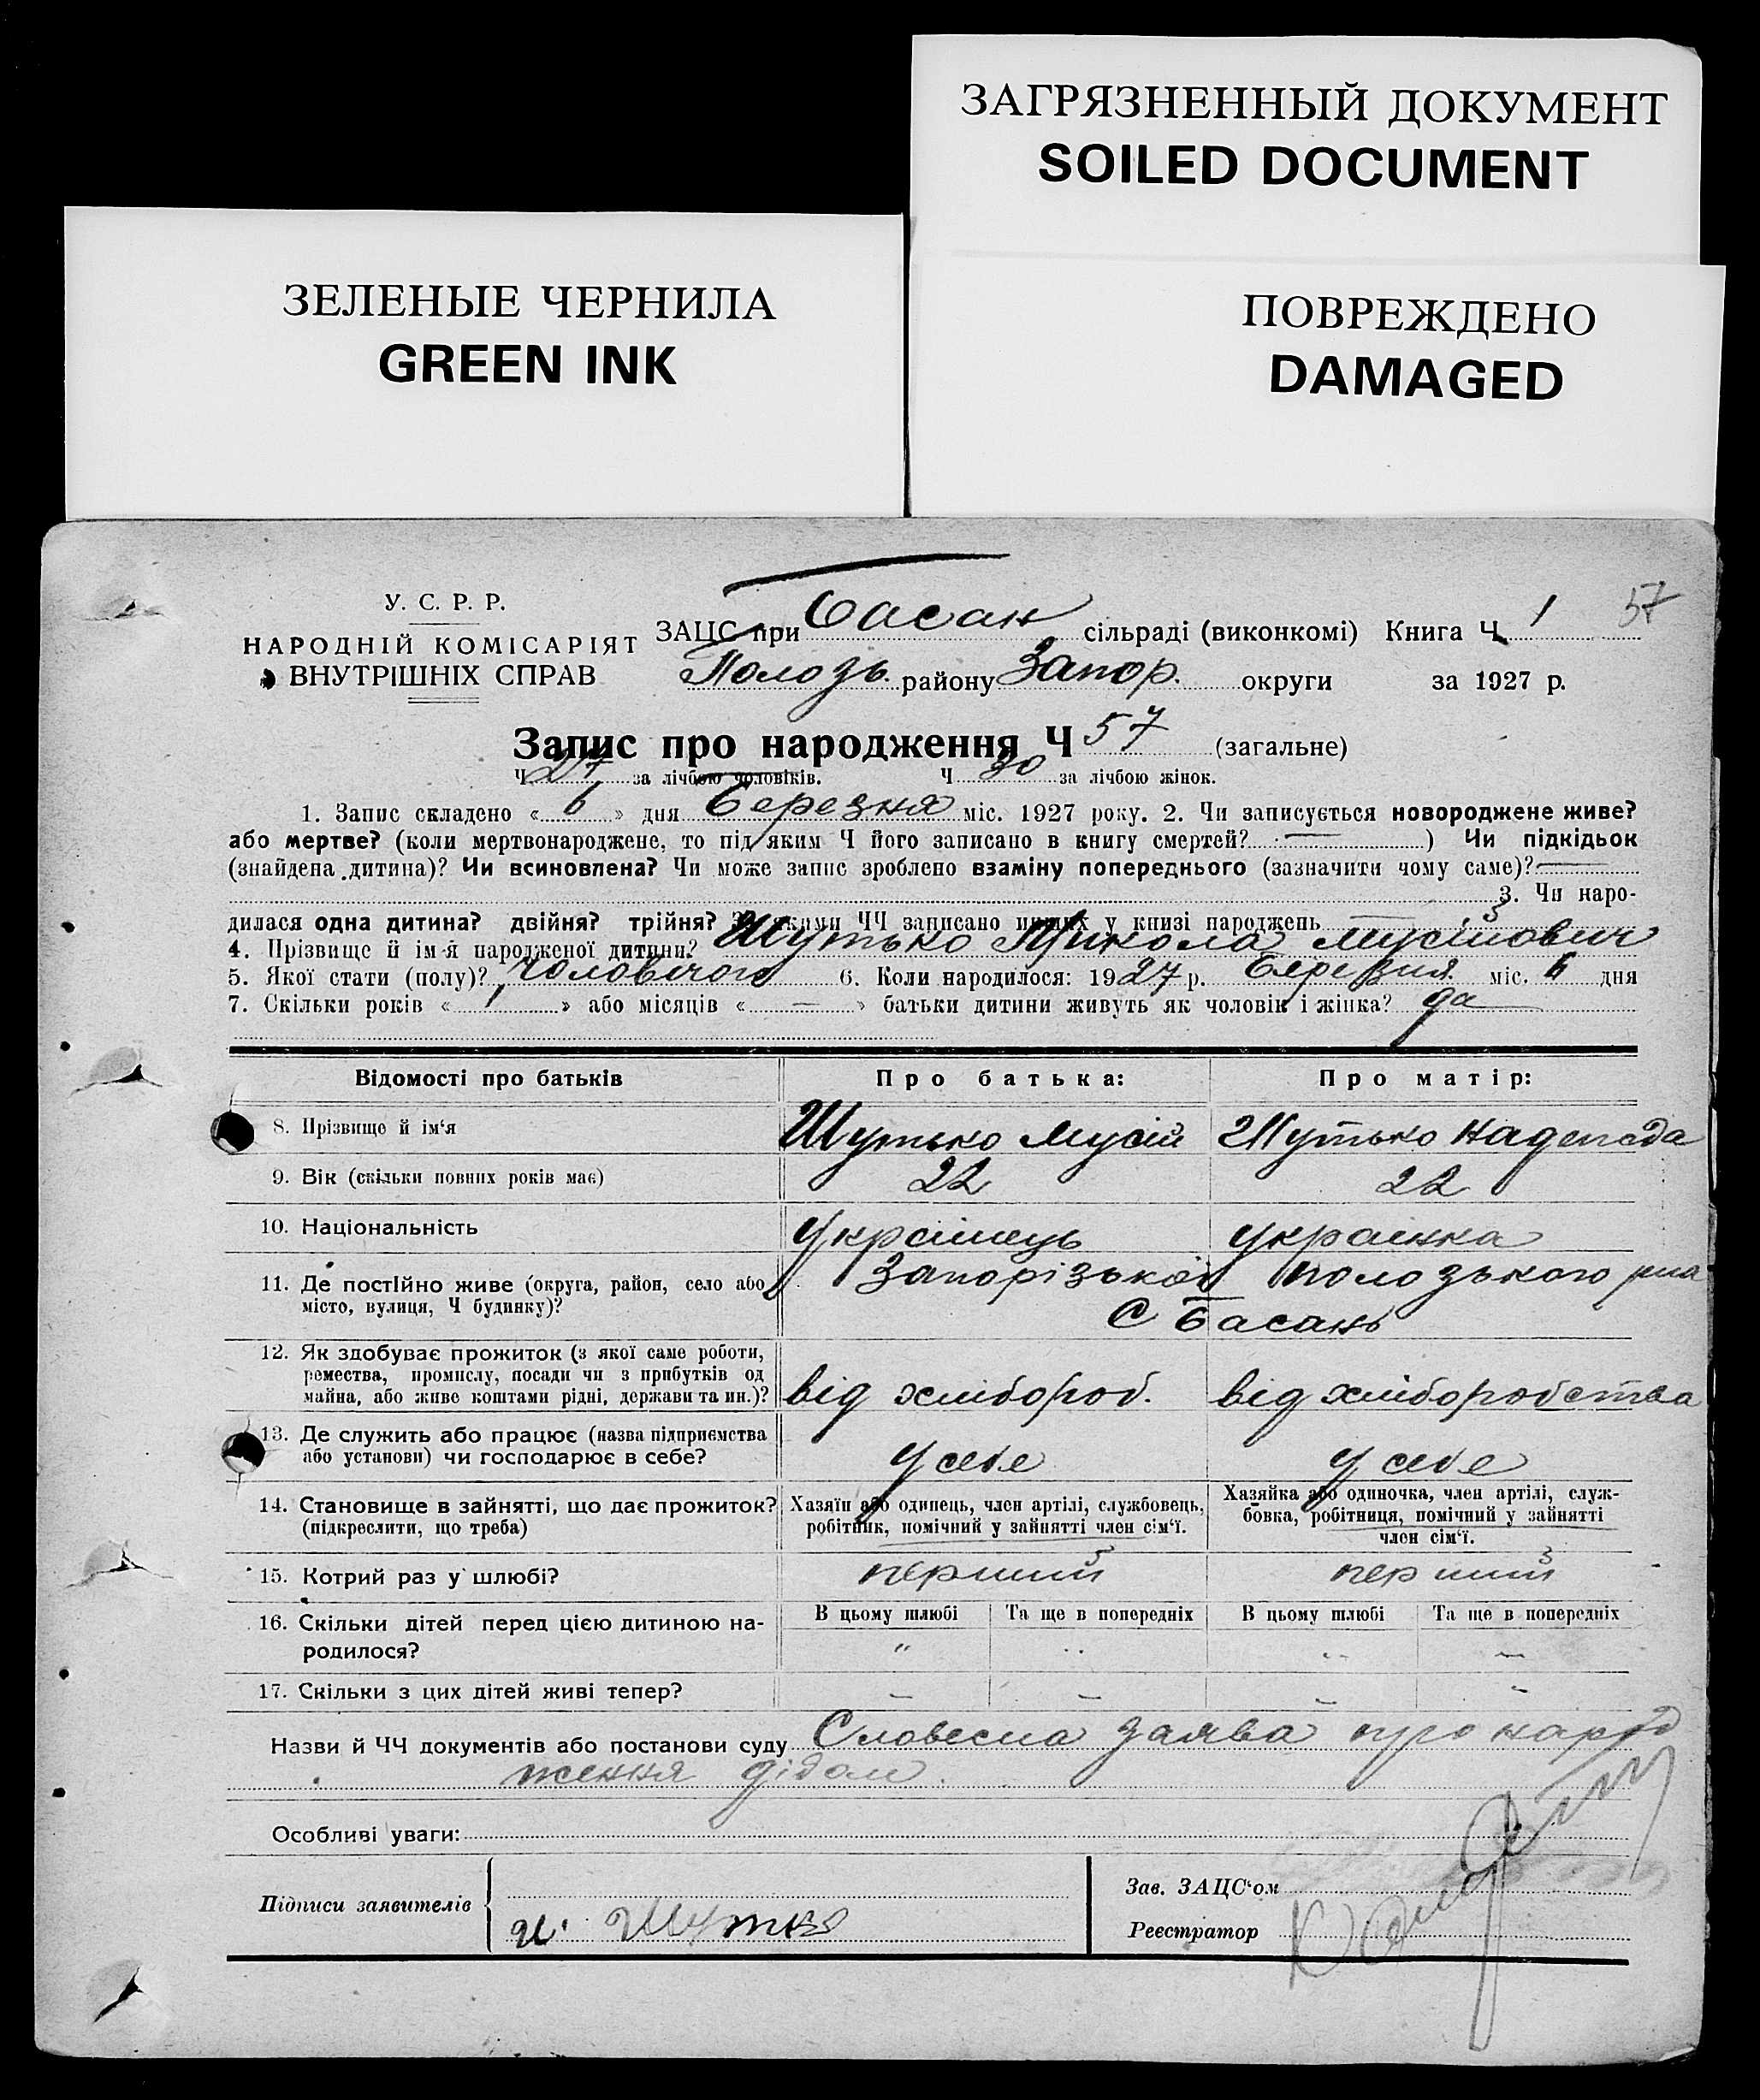 ЗАГРЯЗНЕННЫЙ ДОКУМЕНТ
SOILED DOCUMENT
ЗЕЛЕНЫЕ ЧЕРНИЛА
GREEN INK
ПОВРЕЖДЕНО
DAMAGED
У. С. Р. Р.
НАРОДНІЙ КОМІСАРІЯТ
ВНУТРІШНІХ СПРАВ
57
ЗАЦС при Басан сільраді (виконкомі) Книга Ч 1
Полозь. району Запор. округи за 1927 р.
Запис про народження Ч 57 (загальне)
Ч 27 за лічбою чоловіків. Ч 30 за лічбою жінок.
1. Запис складено « 6 » дня Березня міс. 1927 року. 2. Чи записується новороджене живе?
або мертве? (коли мертвонароджене, то під яким Ч його записано в книгу смертей? — ) Чи підкідьок
(знайдена дитина)? Чи всиновлена? Чи може запис зроблено взаміну попереднього (зазначити чому саме)? —
3. Чи наро-
дилася одна дитина? двійня? трійня? За якими ЧЧ записано инших у книзі народжень —
4. Прізвище й ім‘я народженої дитини? Шутько Микола Мусійович
5. Якої стати (полу)? Чоловічого 6. Коли народилося: 1927 р. Березня міс. 6 дня
7. Скільки років « 1 » або місяців « — » батьки дитини живуть як чоловік і жінка? да
Відомості про батьків Про батька: Про матір:
8. Прізвище й ім‘я Шутько Мусій Шутько Надежда
9. Вік (скільки повних років має) 22 22
10. Національність Українець Українка
11. Де постійно живе (округа, район, село або Запорізької Полозького р
місто, вулиця, Ч будинку)? С Басань
12. Як здобуває прожиток (з якої саме роботи,
ремества, промислу, посади чи з прибутків од
майна, або живе коштами рідні, держави та ин.)? від хлібороб. від хліборобства
13. Де служить або працює (назва підприємства
або установи) чи господарює в себе? у себе у себе
14. Становище в зайнятті, що дає прожиток? Хазяїн або одинець, член артілі, службовець, Хазяйка або одиночка, член артілі, служ-
(підкреслити, що треба) робітник, помічний у зайнятті член сім‘ї. бовка, робітниця, помічний у зайнятті
член сім‘ї.
15. Котрий раз у шлюбі? перший перший
16. Скільки дітей перед цією дитиною на- В цьому шлюбі Та ще в попередніх В цьому шлюбі Та ще в попередніх
родилося? „ „ „ —
17. Скільки з цих дітей живі тепер? — — — —
Назви й ЧЧ документів або постанови суду Словесна заява про народ
ження дідом.
Особливі уваги:
Зав. ЗАЦС‘ом
Підписи заявителів
Шутко
Реєстратор